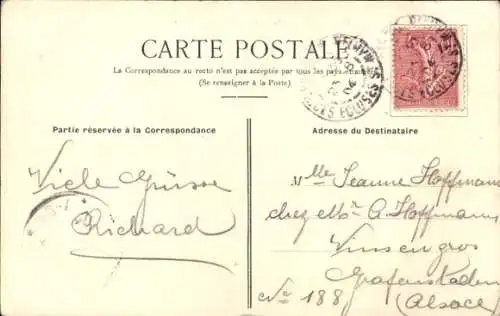 CARTE POSTALE
La Correspondance au recto n'est pas acceptée par tous les pays étrangers
(Se renseigner à la Poste)
Partie réservée à la Correspondance
Viele Grüsse
Richard
Adresse du Destinataire
Mlle Jeanne Hoffmann
chez Mr A. Hoffmann
Vins en gros
Grafenstaden
No 188
(Alsace)